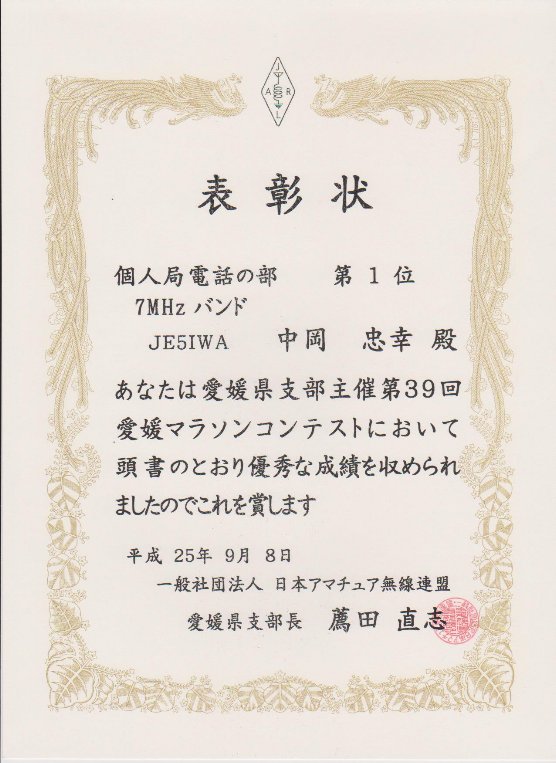 J
A R
L
表彰状
個人局電話の部 第 1 位
7MHz バンド
JE5IWA 中岡 忠幸 殿
あなたは愛媛県支部主催第39回
愛媛マラソンコンテストにおいて
頭書のとおり優秀な成績を収められ
ましたのでこれを賞します
平成 25年 9月 8日
一般社団法人 日本アマチュア無線連盟
愛媛県支部長 薦田 直志